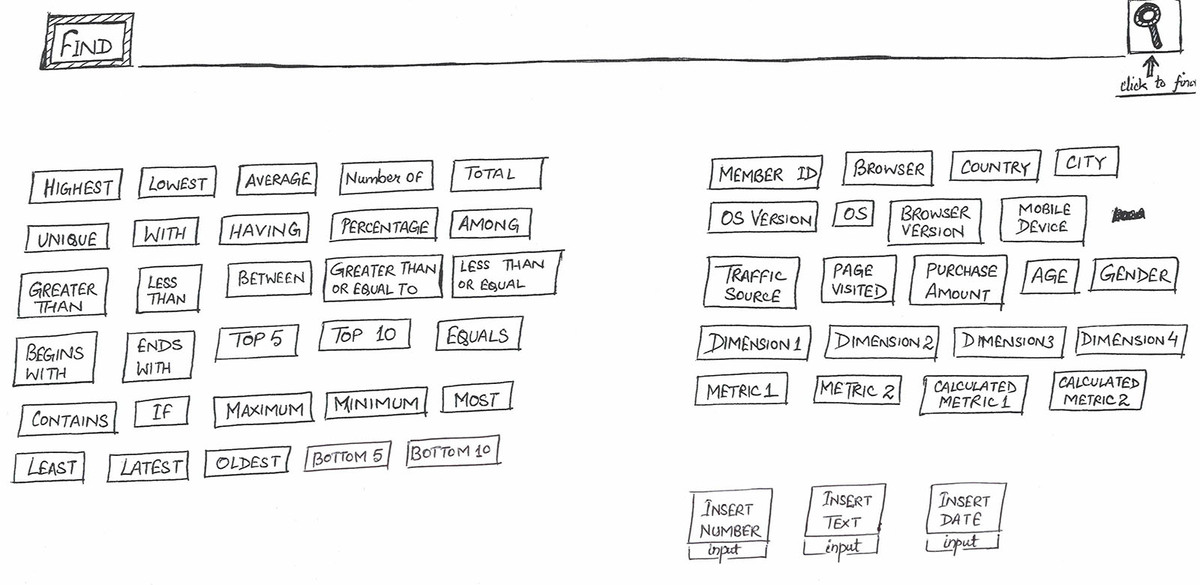 FIND
click to find
HIGHEST LOWEST AVERAGE Number of TOTAL
UNIQUE WITH HAVING PERCENTAGE AMONG
GREATER THAN LESS THAN BETWEEN GREATER THAN OR EQUAL TO LESS THAN OR EQUAL
BEGINS WITH ENDS WITH TOP 5 TOP 10 EQUALS
CONTAINS IF MAXIMUM MINIMUM MOST
LEAST LATEST OLDEST BOTTOM 5 BOTTOM 10
MEMBER ID BROWSER COUNTRY CITY
OS VERSION OS BROWSER VERSION MOBILE DEVICE
TRAFFIC SOURCE PAGE VISITED PURCHASE AMOUNT AGE GENDER
DIMENSION 1 DIMENSION 2 DIMENSION 3 DIMENSION 4
METRIC 1 METRIC 2 CALCULATED METRIC 1 CALCULATED METRIC 2
INSERT NUMBER INSERT TEXT INSERT DATE
input input input